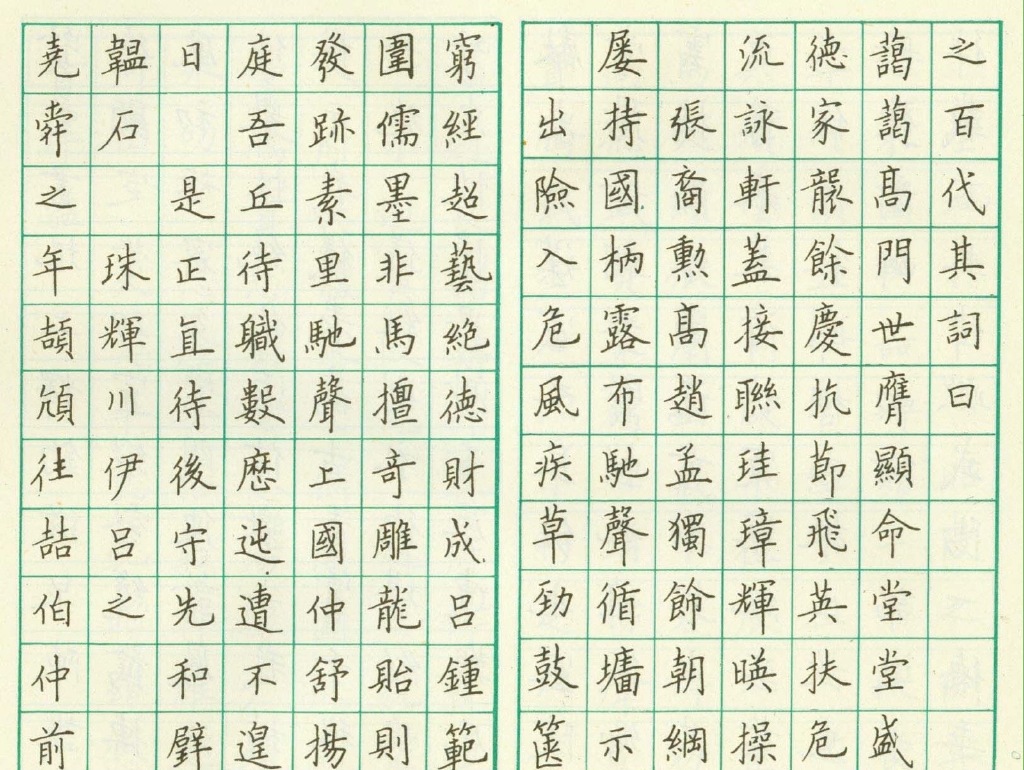 之百代其詞曰
藹藹髙門世膺顯命堂堂盛
徳家襲餘慶抗莭飛英扶危
流詠軒蓋接聯珪璋輝暎操
張裔勲髙趙孟獨飾朝綱
屡持國柄露布馳聲循墻示
出險入危風疾草勁鼓篋
窮經超藝絕徳財成呂鍾範
圍儒墨非馬擅奇雕龍貽則
發跡素里馳聲上國仲舒揚
庭吾丘待職數歷迍邅不遑
日是正直待後守先和璧
韞石珠輝川伊呂之
堯舜之年頡頏往喆伯仲前